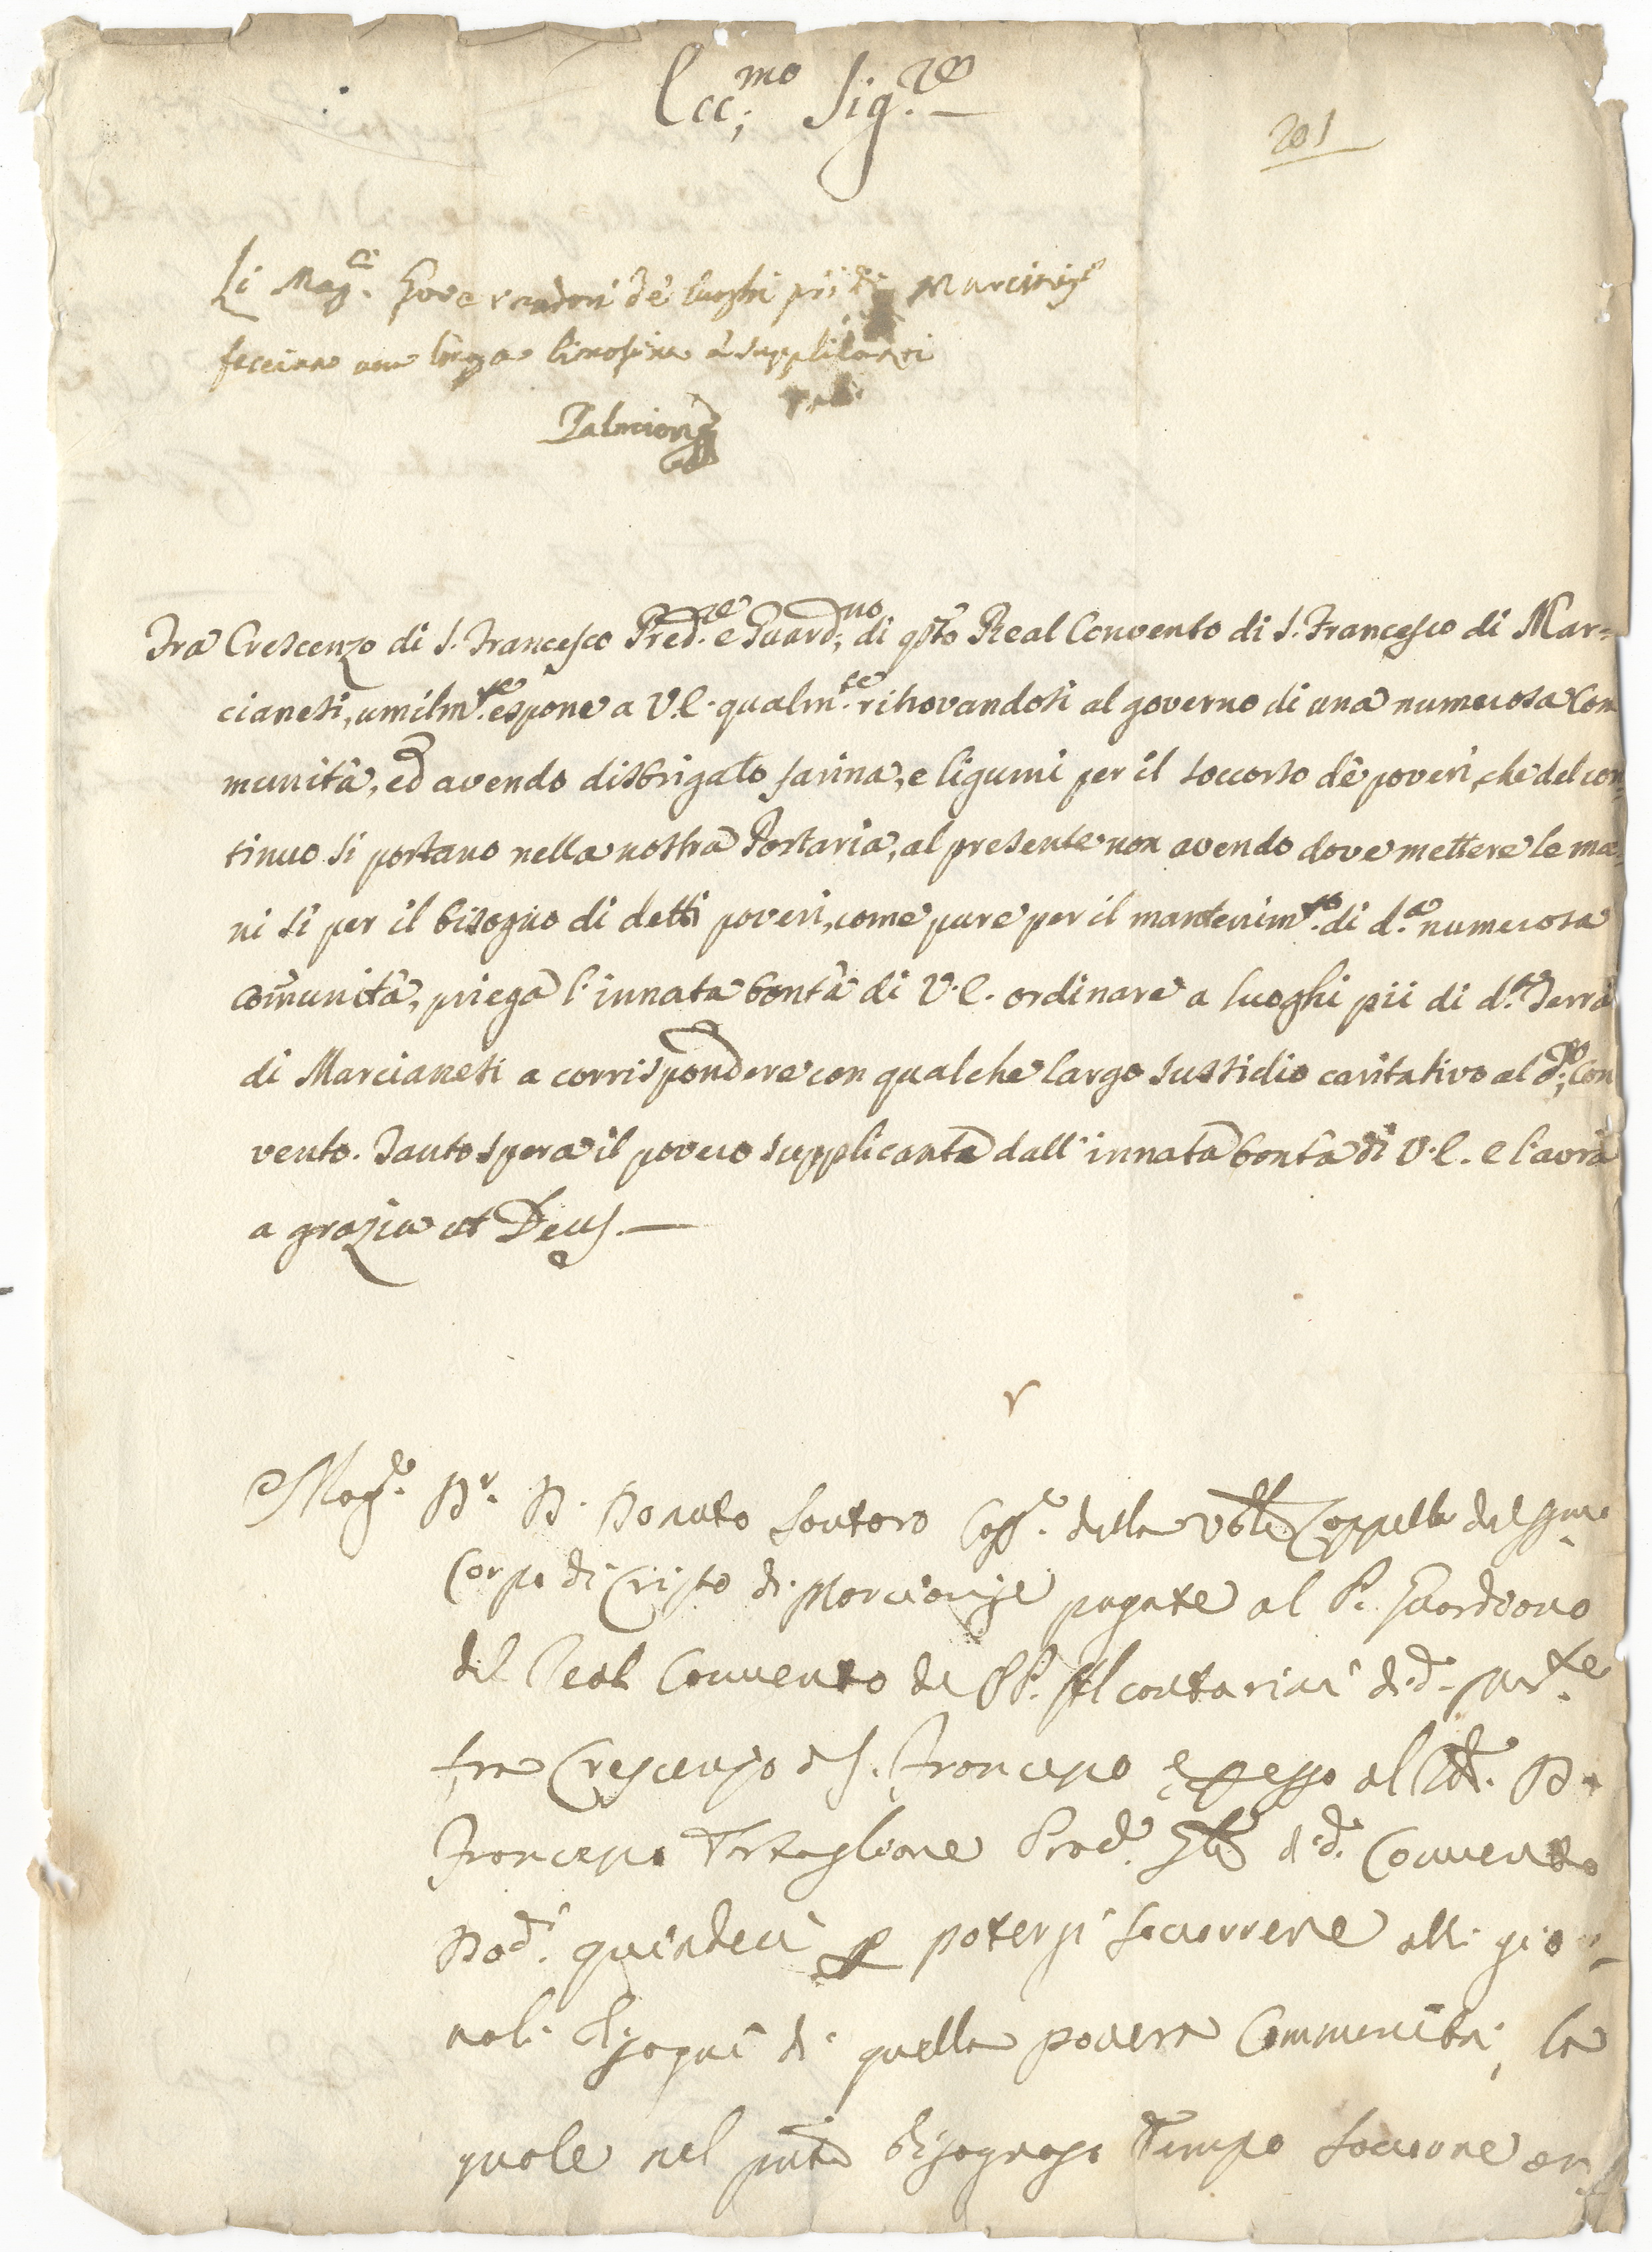 Ecc:mo Sig.re
201
Li Mag.ci Governadori de luoghi pii di Marcianise
facciano una larga limosina a supplicanti
Fra Crescenzo di S. Francesco Pred.re e Guard:no di q̃sto Real Convento di S. Francesco di Mar=
cianesi, umilm.te espone a V.E. qualm.te ritrovandosi al governo di una numerosa Com
munità, ed avendo disbrigato farina, e ligumi per il soccorso dè poveri, che del con=
tinuo si portano nella nostra Portaria, al presente non avendo dove mettere le ma=
ni sì per il bisogno di detti poveri, come pure per il mantenim.to di d.a numerosa
com̃unità, priega l'innata bontà di V.E. ordinare a luoghi pii di d.a Terra
di Marcianesi a corrispondere con qualche largo sussidio caritativo al d:o Con
vento. Tanto spera il povero supplicante dall'innata bontà di V.E. e l'avrà
a grazia ut Deus.
Mag.co D.r D. Donato Santoro Cass.re della Ven.le Cappella del SSmo
Corpo di Cristo di Marcianise pagate al P. Guardiano
del Real Convento de PP. Alcantarini di d.
fra Crescenzo di S. Francesco e per esso al D.
Francesco Tartaglione Proc.re di d.o Convento
Doc.ti quindeci per potersi soccorrere alli gior=
nali bisogni di quella povera Communità, la
quale nel pnte bisognoso tempo soccorre